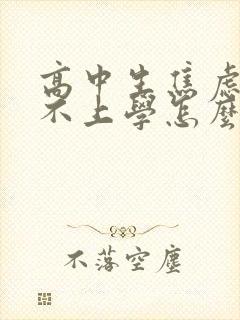 高中生焦慮
不上學怎麼
不落空塵